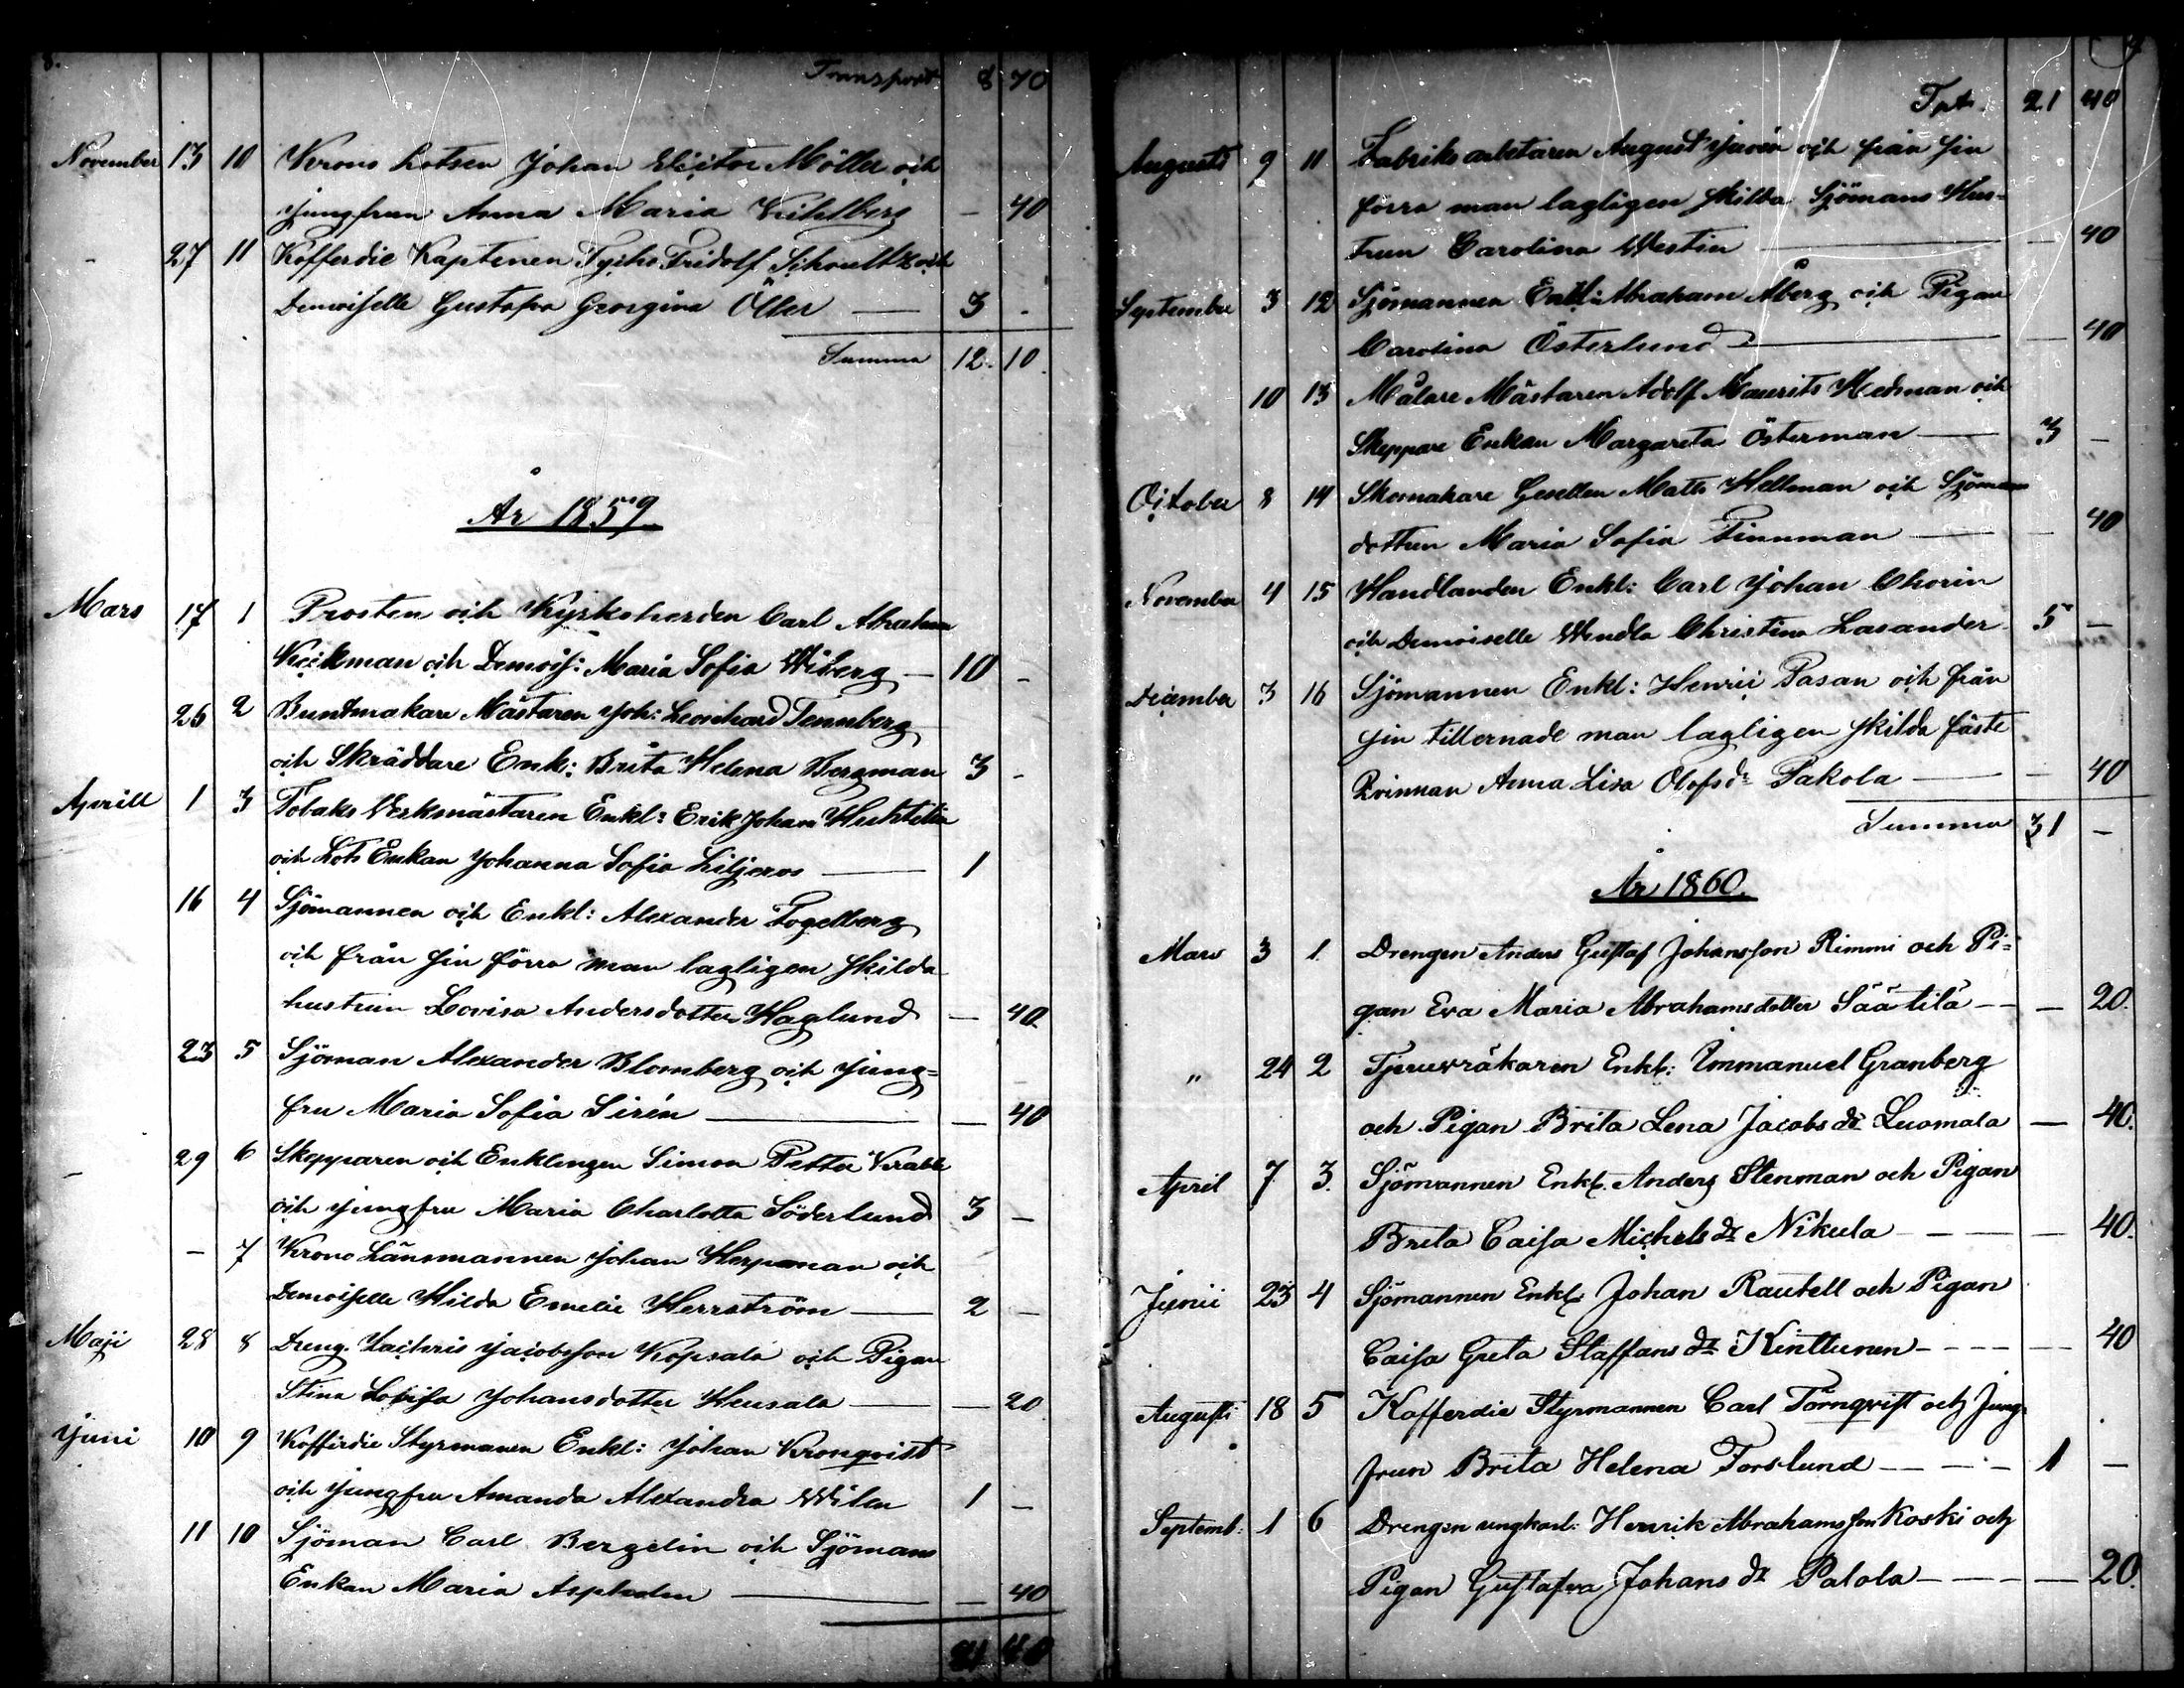 8.
Transport 8 70
November 13 10 Krono Lotsen Johan Victor Möller och
jungfrun Anna Maria Kihlberg — 40
- 27 11 Kofferdie Kaptenen Tycho Fridolf Schoultz och
Demoiselle Gustafva Georgina Öller — 3 -
Summa 12. 10.
År 1859
Mars 17 1 Prosten och Kyrkoherden Carl Abraham
Keckman och Demois: Maria Sofia Wiberg — 10 -
25 2 Buntmakare Mästaren Joh: Leonhard Tennberg
och Skräddare Enk: Brita Helena Bergman 3 -
Aprill 1 3 Tobaks Verkmästaren Enkl: Erik Johan Huhtelin
och Lots Enkan Johanna Sofia Liljeros — 1
16 4 Sjömannen och Enkl: Alexander Fogelberg
och från sin förra man lagligen skilda
hustrun Lovisa Andersdotter Haglund — 40
23 5 Sjöman Alexander Blomberg och Jung=
fru Maria Sofia Sirén — 40
- 29 6 Skepparen och Enklingen Simon Petter Krabb
och jungfru Maria Charlotta Söderlund 3 -
- 7 Krono Länsmannen Johan Hespman och
Demoiselle Hilda Emelie Herrström — 2 -
Maji 28 8 Dreng. Zachris Jacobsson Kopsala och Pigan
Stina Lovisa Johansdotter Heusala — 20
Juni 10 9 Koffirdie Styrmannen Enkl: Johan Kronqvist
och jungfru Amanda Alexandra Wilen 1 -
11 10 Sjöman Carl Bergelin och Sjömans
Enkan Maria Aspholm — 40
21 40
Tpt. 21 40
Augusti 9 11 Fabriks arbetaren August och från sin
förra man lagligen skilda Sjömans Hus-
trun Carolina Westin — 40
September 3 12 Sjömannen Enkl: Abraham Åberg och Pigan
Carolina Österlund — 40
10 13 Målare Mästaren Adolf Maurits Hedman och
Skeppare Enkan Margareta Österman — 3 -
October 8 14 Skomakare Gesellen Matts Hellman och Sjömans
dottren Maria Sofia Finnman — 40
November 4 15 Handlanden Enkl: Carl Johan Chorin
och Demoiselle Wendla Christina Lasander 5 -
December 3 16 Sjömannen Enkl: Henric Pasan och från
sin tillernade man lagligen skilda fäste
Qvinnan Anna Lisa Olofsdr Pakola — 40
Summa 31 -
År 1860.
Mars 3 1. Drengen Anders Gustaf Johansson Rimmi och Pi=
gan Eva Maria Abrahamsdotter Säätilä — 20.
" 24 2 Tjeruvräkaren Enkl: Immanuel Granberg
och Pigan Brita Lena Jacobs dr Luomala — 40.
April 7 3. Sjömannen Enkl. Anders Stenman och Pigan
Brita Caisa Michels dr Nikula — 40.
Junii 23 4 Sjömannen Enkl. Johan Rautell och Pigan
Caisa Greta Staffans dr Kinttunen — 40
Augusti 18 5 Kofferdie Styrmannen Carl Törnqvist och Jung-
frun Brita Helena Forslund — 1 -
Septemb: 1 6 Drengen ungkarl. Henrik Abrahamsson Koski och
Pigan Gustafva Johans dr Palola — 20.